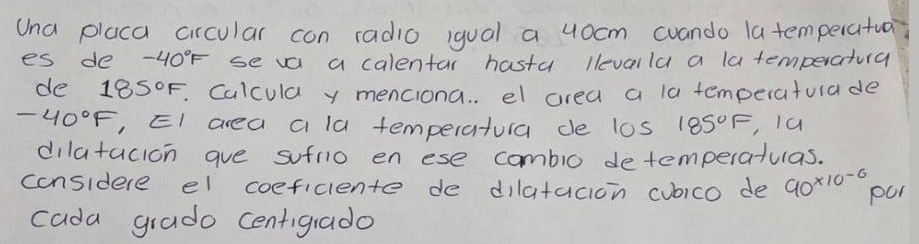 Una placa circular con radio igual a 40cm cuando la temperatura
es de -40°F se va a calentar hasta llevarla a la temperatura
de 185°F. Calcula y menciona.. el area a la temperatura de
-40°F, El area a la temperatura de los 185°F, la
dilatación que sufrio en ese cambio de temperaturas.
considere el coeficiente de dilatación cubico de 90×10⁻⁶ por
cada grado centigrado